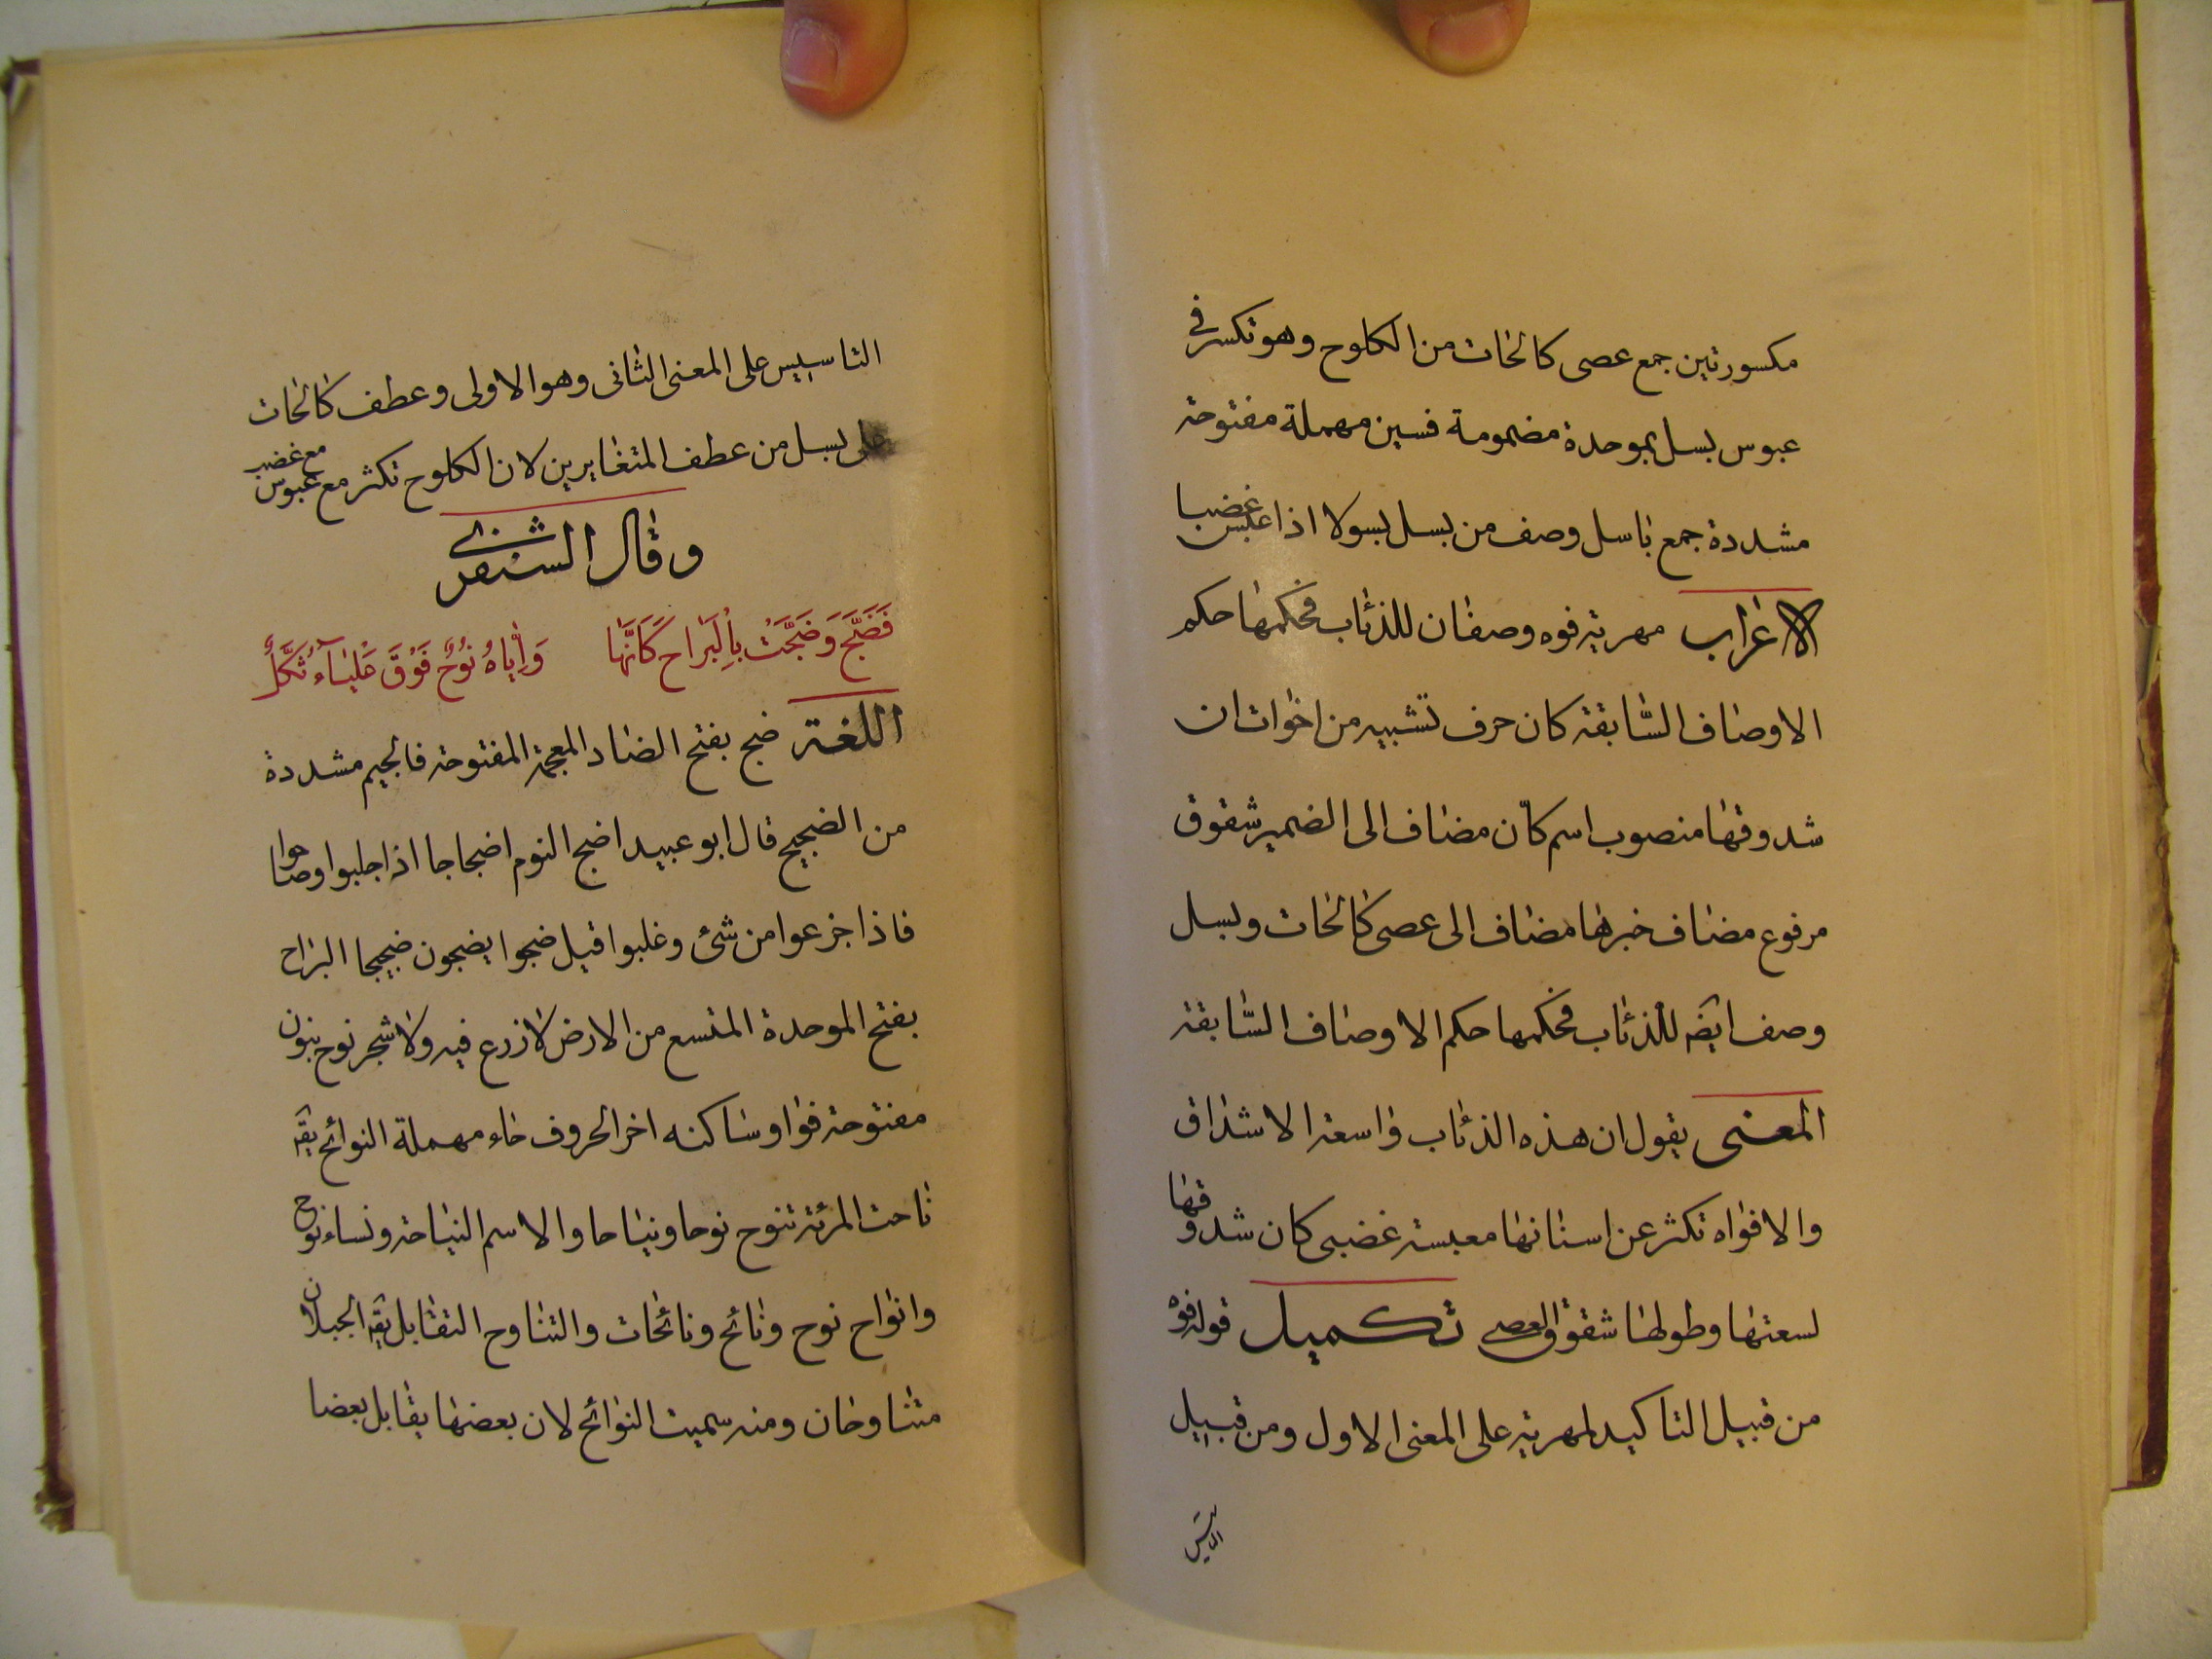 مكسورتين جمع عصى كالحات من الكلوح وهو تكسر فى
عبوس بسل بموحدة مضمومة فسين مهملة مفتوحة
مشددة جمع باسل وصف من بسل بسولا اذا عبس غضبا
الاعراب مهرية فوه وصفان للذئاب فحكمها حكم
الاوصاف السّابقة كان حرف تشبيه من اخوات ان
شدوقها منصوب اسم كاّن مضاف الى الضمير شقوق
مرفوع مضاف خبرها مضاف الى عصى كالحات وبسل
وصف ايضه للذئاب فحكمها حكم الاوصاف السّابقة
المعنى يقول ان هذه الذئاب واسعة الاشداق
والافواه تكثر عن اسنانها معبسة غضبى كان شدوقها
لسعتها وطولها شقوق العصى تكميل قوله فوه
من قبيل التاكيد لمهرية على المعنى الاول ومن قبيل
التاسيس
التاسيس على المعنى الثانى وهو الاولى وعطف كالحات
على بسل من عطف المتغايرين لان الكلوح تكثر مع عبوس مع غضب
وقال الشنفرى
فَضَجَّ وَضَجَّتْ بِالْبَرَاحِ كَاَنَّهَا وَاِيَّاهُ نُوْحٌ فَوْقَ عَلْيَآءَ ثُكَّلُ
اللغة ضج بفتح الضاد المعجمة المفتوحة فالجيم مشددة
من الضجيج قال ابو عبيد اضج النوم اضجاجا اذا جلبوا وصاحوا
فاذا جزعوا من شئ وغلبوا قيل ضجوا يضجون ضجيجا البراح
بفتح الموحدة المتسع من الارض لا زرع فيه ولا شجر نوح بنون
مفتوحة فواو ساكنه اخر الحروف حاء مهملة النوائح يقه
ناحت المرئة تنوح نوحا ونياحا والاسم النياحة ونساء نوح
وانواح نوح ونائح ونائحات والتناوح التقابل يقه الجبلان
متناوحان ومنه سميت النوائح لان بعضها يقابل بعضا